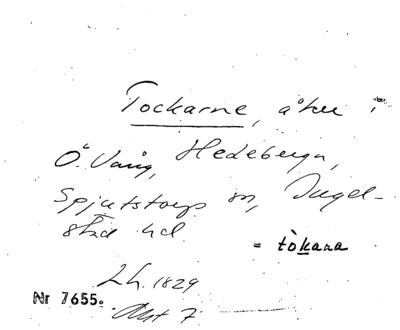 Tockarne, åker i
Ö. Vång, Hedeberga,
Spjutstorps sn, Ingel-
stad hd
= tòkana
Lh. 1829
Nr 7655.
Akt 7